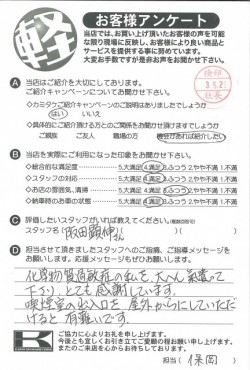 軽
お客様アンケート
当店では、お買い上げ頂いたお客様の声を可能
な限り現場に反映し、お客様により良い商品と
サービスを提供する事に努めています。
大変お手数ですが是非お声をお聞かせ下さい。
検印
社長
A 当店はご紹介を大切にしております。
ご紹介キャンペーンについてお聞かせ下さい。
◇カミタケご紹介キャンペーンのご説明はありましたでしょうか
はい いいえ
◇具体的にご紹介頂ける方とのご関係をお聞かせ頂けますでしょうか
ご親族 ご友人 職場の方 機会があれば紹介したい
B 当店を実際にご利用になった印象をお聞かせ下さい。
◇総合的な満足度 5.大満足 4.満足 3.ふつう 2.やや不満 1.不満
◇スタッフの対応 5.大満足 4.満足 3.ふつう 2.やや不満 1.不満
◇お店の雰囲気、清掃 5.大満足 4.満足 3.ふつう 2.やや不満 1.不満
◇納車時のお車の状態 5.大満足 4.満足 3.ふつう 2.やや不満 1.不満
C 評価したいスタッフがいれば教えてください。
スタッフ名 阪田 さん
D 担当させて頂きましたスタッフへのご指摘、ご指導メッセージを
お願いします。応援メッセージもぜひお願いします。
化学物質過敏症の私を、大へん気遣って
下さり、とても感謝しています。
喫煙室の出入口を屋外からにしていただ
けると有難いです。
K
ご協力に心よりお礼を申し上げます。
今後とも宜しくお引き立てご愛顧の程お願い申し上げます。
またのご来店を心からお待ちしております。
担当( 保岡 )